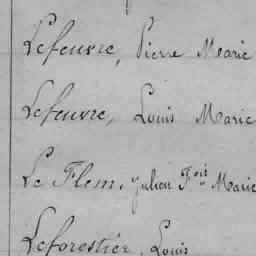 Lefeuvre, Pierre Marie
Lefeuvre, Louis Marie
Le Flem, Julien Fois Marie
Leforestier, Louis